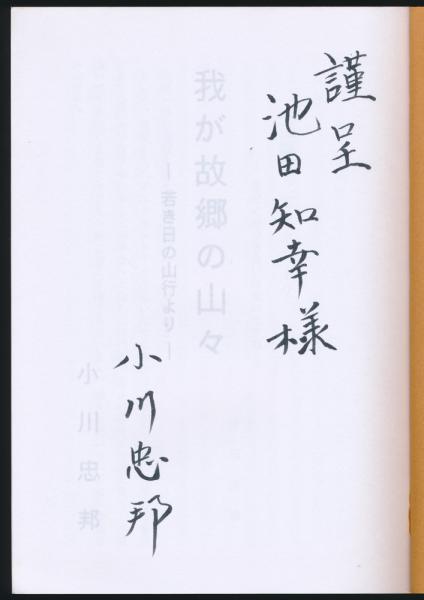 謹呈
池田知幸様
小川忠邦
我が故郷の山々
― 若き日の山行より ―
小川忠邦